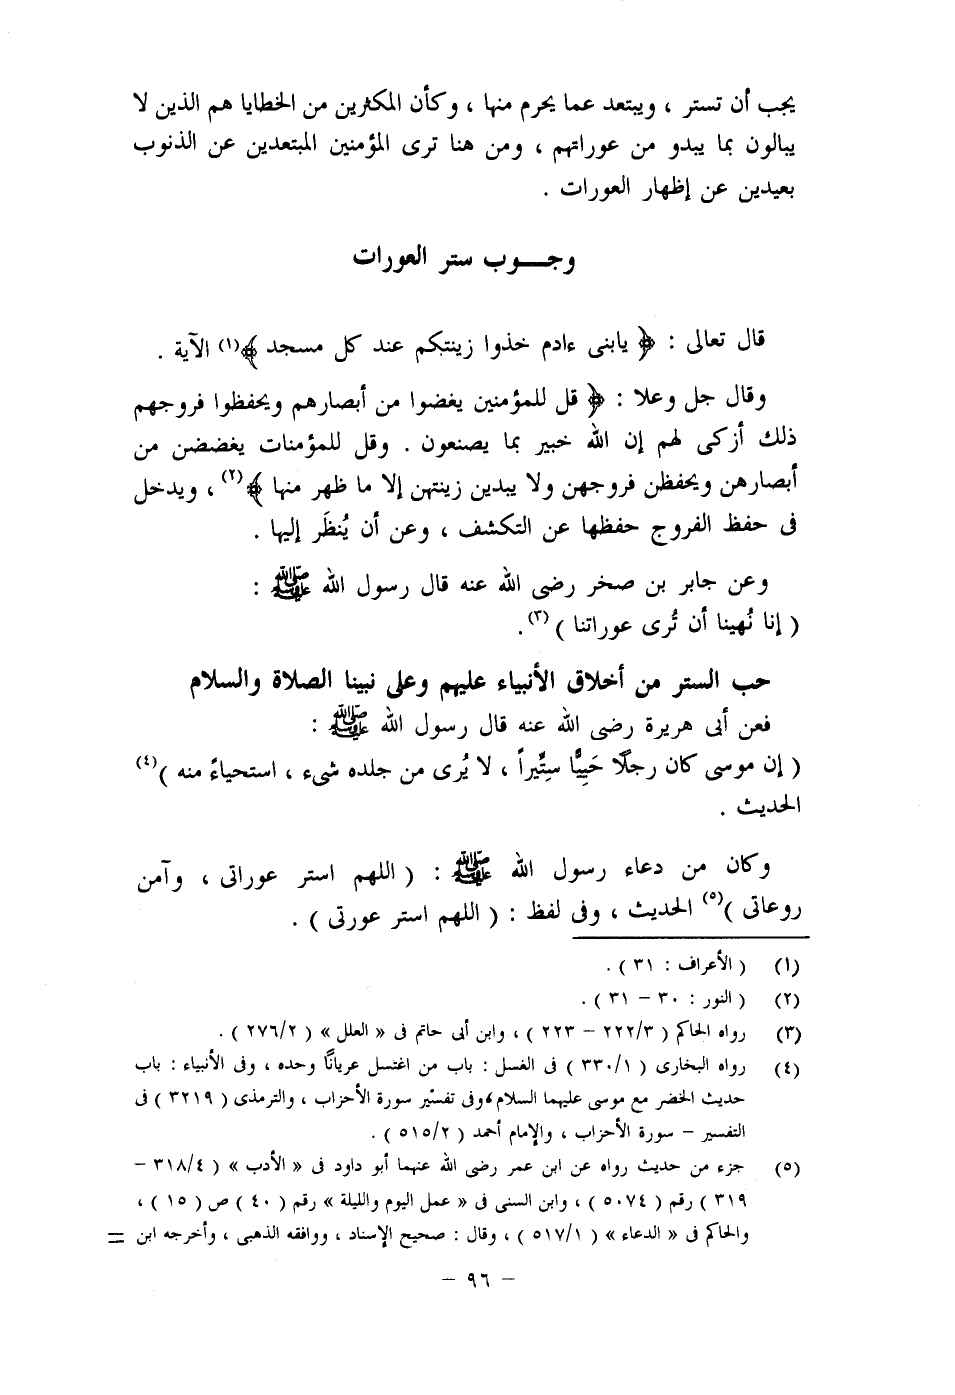 يجب أن تستر ، ويبتعد عما يحرم منها ، وكأن المكثرين من الخطايا هم الذين لا
يبالون بما يبدو من عوراتهم ، ومن هنا ترى المؤمنين المبتعدين عن الذنوب
بعيدين عن إظهار العورات .
وجــوب ستر العورات
قال تعالى : ﴿ يابنى ءادم خذوا زينتكم عند كل مسجد ﴾(١) الآية .
وقال جل وعلا : ﴿ قل للمؤمنين يغضوا من أبصارهم ويحفظوا فروجهم
ذلك أزكى لهم إن الله خبير بما يصنعون . وقل للمؤمنات يغضضن من
أبصارهن ويحفظن فروجهن ولا يبدين زينتهن إلا ما ظهر منها ﴾(٢) ، ويدخل
فى حفظ الفروج حفظها عن التكشف ، وعن أن يُنظَر إليها .
وعن جابر بن صخر رضى الله عنه قال رسول الله ﷺ :
( إنا نُهينا أن تُرى عوراتنا )(٣).
حب الستر من أخلاق الأنبياء عليهم وعلى نبينا الصلاة والسلام
فعن أبى هريرة رضى الله عنه قال رسول الله ﷺ :
( إن موسى كان رجلًا حَيِيًّا سِتِّيراً ، لا يُرى من جلده شىء ، استحياءً منه )(٤)
الحديث .
وكان من دعاء رسول الله ﷺ : ( اللهم استر عوراتى ، وآمن
روعاتى )(٥) الحديث ، وفى لفظ : ( اللهم استر عورتى ) .
(١) ( الأعراف : ٣١ ) .
(٢) ( النور : ٣٠ – ٣١ ) .
(٣) رواه الحاكم ( ٢٢٢/٣ – ٢٢٣ ) ، وابن أبى حاتم فى « العلل » ( ٢٧٦/٢ ) .
(٤) رواه البخارى ( ٣٣٠/١ ) فى الغسل : باب من اغتسل عريانًا وحده ، وفى الأنبياء : باب
حديث الخضر مع موسى عليهما السلام ، وفى تفسير سورة الأحزاب ، والترمذى ( ٣٢١٩ ) فى
التفسير – سورة الأحزاب ، والإمام أحمد ( ٥١٥/٢ ) .
(٥) جزء من حديث رواه عن ابن عمر رضى الله عنهما أبو داود فى « الأدب » ( ٣١٨/٤ –
٣١٩ ) رقم ( ٥٠٧٤ ) ، وابن السنى فى « عمل اليوم والليلة » رقم ( ٤٠ ) ص ( ١٥ ) ،
والحاكم فى « الدعاء » ( ٥١٧/١ ) ، وقال : صحيح الإسناد ، ووافقه الذهبى ، وأخرجه ابن =
– ٩٦ –